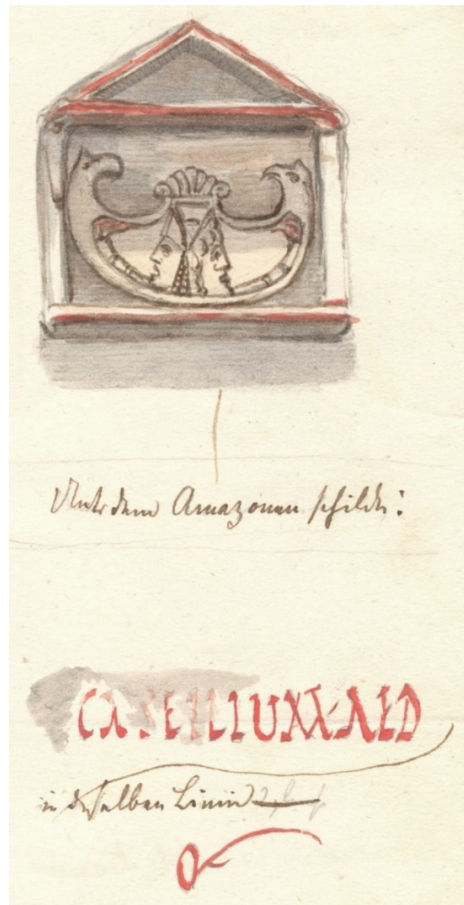 Unter dem Amazonenschilde:
CASELLIUM·AED
in derselben Linie